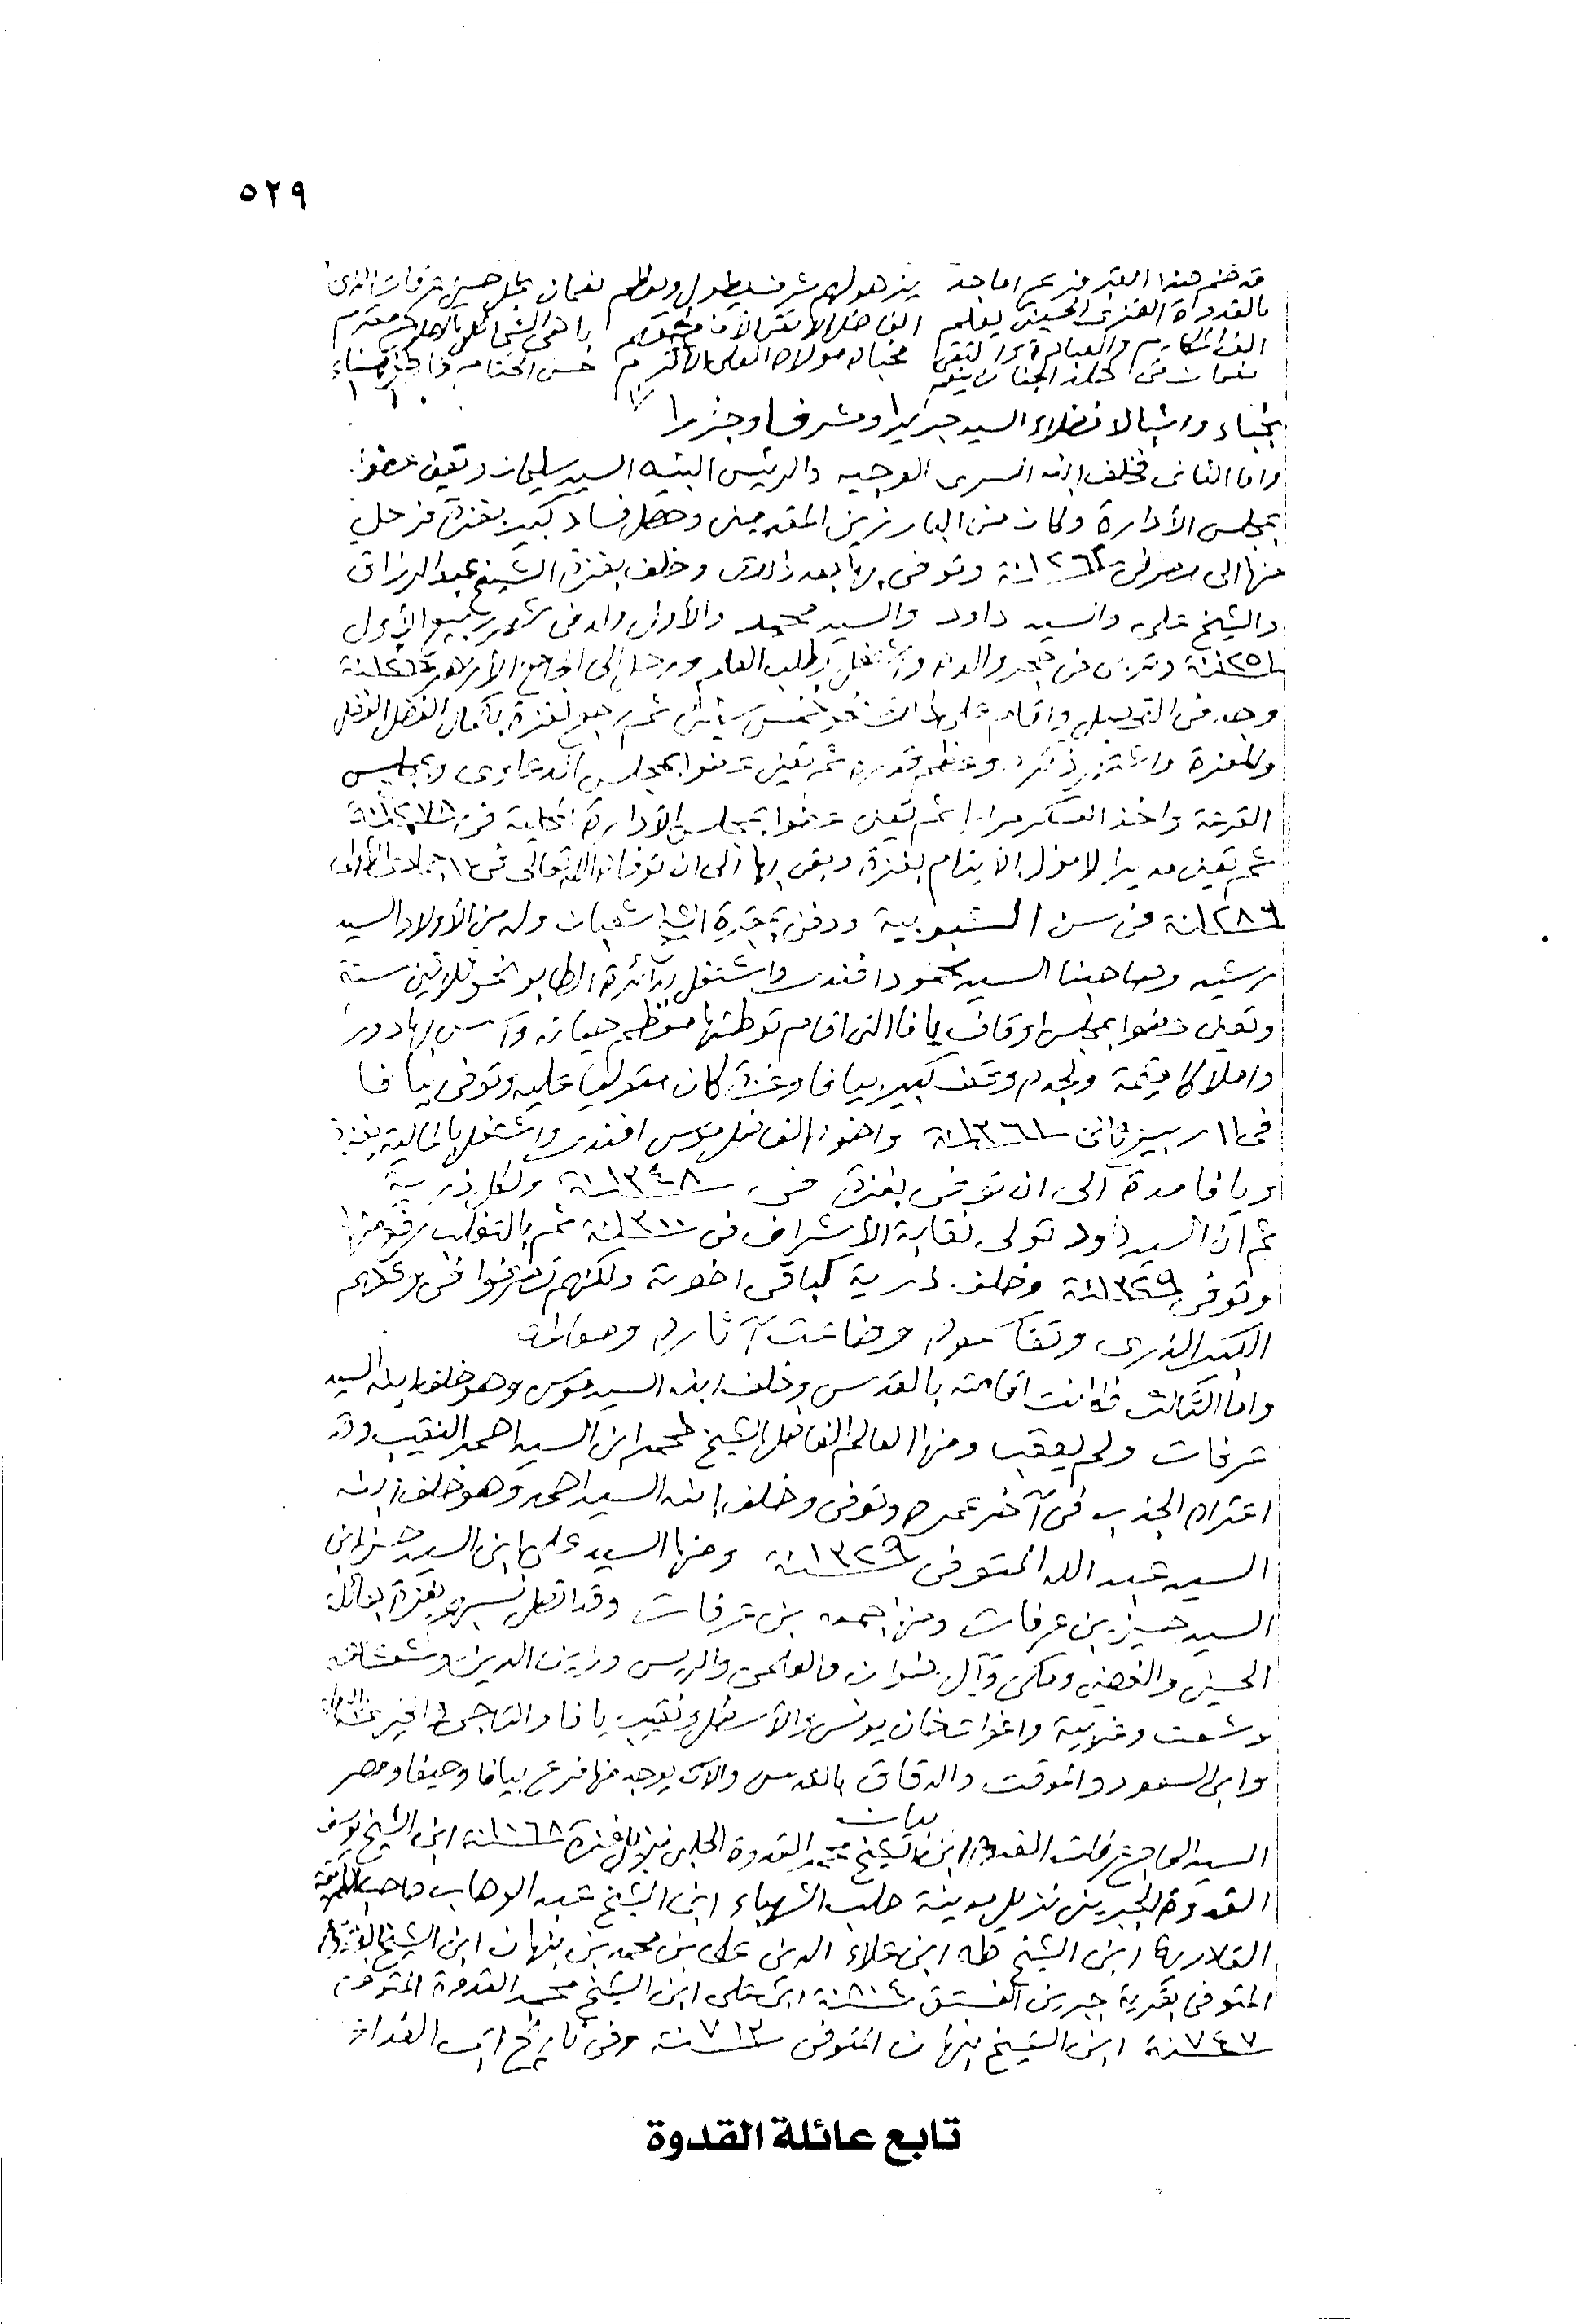 ٥٢٩
قد ضم هذا القبر فرع اماجد يزهو لهم شرف يطول ويعظم نعمان نجل حسين عرفات الذي
بالقدوة الغزي الحسيني يعلم الفاضل
الف المكارم والعبادة والتقى مولاه العلي الأكرم حسن الختام
نعمان في خلد الجنان ينعم
السيد جبريل ومشرف وجزرا
واما الثاني فخلف ابنه السري الوجيه والرئيس النبيه السيد سليمان وتعين عضوا
بمجلس الأدارة وكان من البارزين المقدمين وحصل فساد كبير بغزة فرحل
منها الى مصر في سنة وتوفي بها بعد ذلك وخلف بغزة الشيخ عبد الرزاق
والشيخ علي والسيد داود والسيد محمد والأول ولد في شهر ربيع الأول
١٢٥١سنة وتربى في حجر والده واشتغل بطلب العلم ورحل الى الجامع الأزهر
وجد في التحصيل واقام على ذلك نحو خمس سنين ثم رجع لغزة بكمال الفضل
والمعزة واشتهر ذكره وعظم قدره ثم تعين عضوا بمجلس الدعاوي وبمجلس
القرعة واخذ العسكر مرارا ثم تعين عضوا بمجلس الأدارة المحلية في ١٢٧٨سنة
ثم تعين مديرا لاموال الأيتام بغزة وبقي بها الى ان توفاه الله تعالى في جمادى
١٢٨٩سنة في سن الشبوبية ودفن بمقبرة شعبان وله من الأولاد السيد
رشيد وصاحبنا السيد محمود افندي واشتغل بدائرة الطابو نحو ثلاثين سنة
وتعين عضوا بمجلس اوقاف يافا التي اقام توطنها معظم حياته واسس بها دورا
واملاكا قيمة ولجدهم وقف كبير بيافا وغزة كان متوليا عليه وتوفي بيافا
في ١١ ربيع ثاني ١٣٦١سنة واخوه الفاضل موسى افندي واشتغل بالمالية بغزة
ويافا مدة الى ان توفي بغزة في ١٣٤٨سنة ولكل ذرية
ثم ان السيد داود تولى نقابة الأشراف في ١٣١٠سنة ثم بالتغلب
وتوفي ١٣٢٩سنة وخلف ذرية كباقي اخوته ولكنهم
الكبير الذري
واما الثالث فكانت اقامته بالقدس وخلف ابنه السيد موسى وهو خلف ابنه السيد
عرفات ولم يعقب ومنها العالم الفاضل الشيخ محمد ابن السيد احمد النقيب وقد
اعتراه الجذب في آخر عمره وتوفي وخلف ابنه السيد احمد وهو خلف ابنه
السيد عبد الله المتوفى ١٣٢٩سنة ومنها السيد علي ابن السيد حسن ابن
السيد حسين بن عرفات ومن احمد بن عرفات وقد اتصل نسبهم بغزة بعائلة
الحسيني والغصين ومكي وآل رضوان والعلمي والريس وزين الدين وشعشاعه
وشعت وغلاييني واغوات خان يونس والأسطل ونقيب يافا والتاجي
وابي السعود والموقت والدقاق بالقدس والآن يوجد منها فرع بيافا وحيفا ومصر
بيان
السيد الحاج عرفات القدوة ابن الشيخ محمد القدوة الحلبي نزيل غزة ١٠٦٨سنة ابن الشيخ يوسف
القدوة الجبريني نزيل مدينة حلب الشهباء ابن الشيخ عبد الوهاب صاحب الطريقة
القادرية ابن الشيخ طه ابن علاء الدين علي بن محمد بن نبهان ابن الشيخ
المتوفى بقرية جبرين الفستق ٨٠٤سنة ابن علي ابن الشيخ محمد القدوة المتوفى
٧٤٧سنة ابن الشيخ نبهان المتوفى ٧١٣سنة وفي تاريخ ابي الفداء
تابع عائلة القدوة